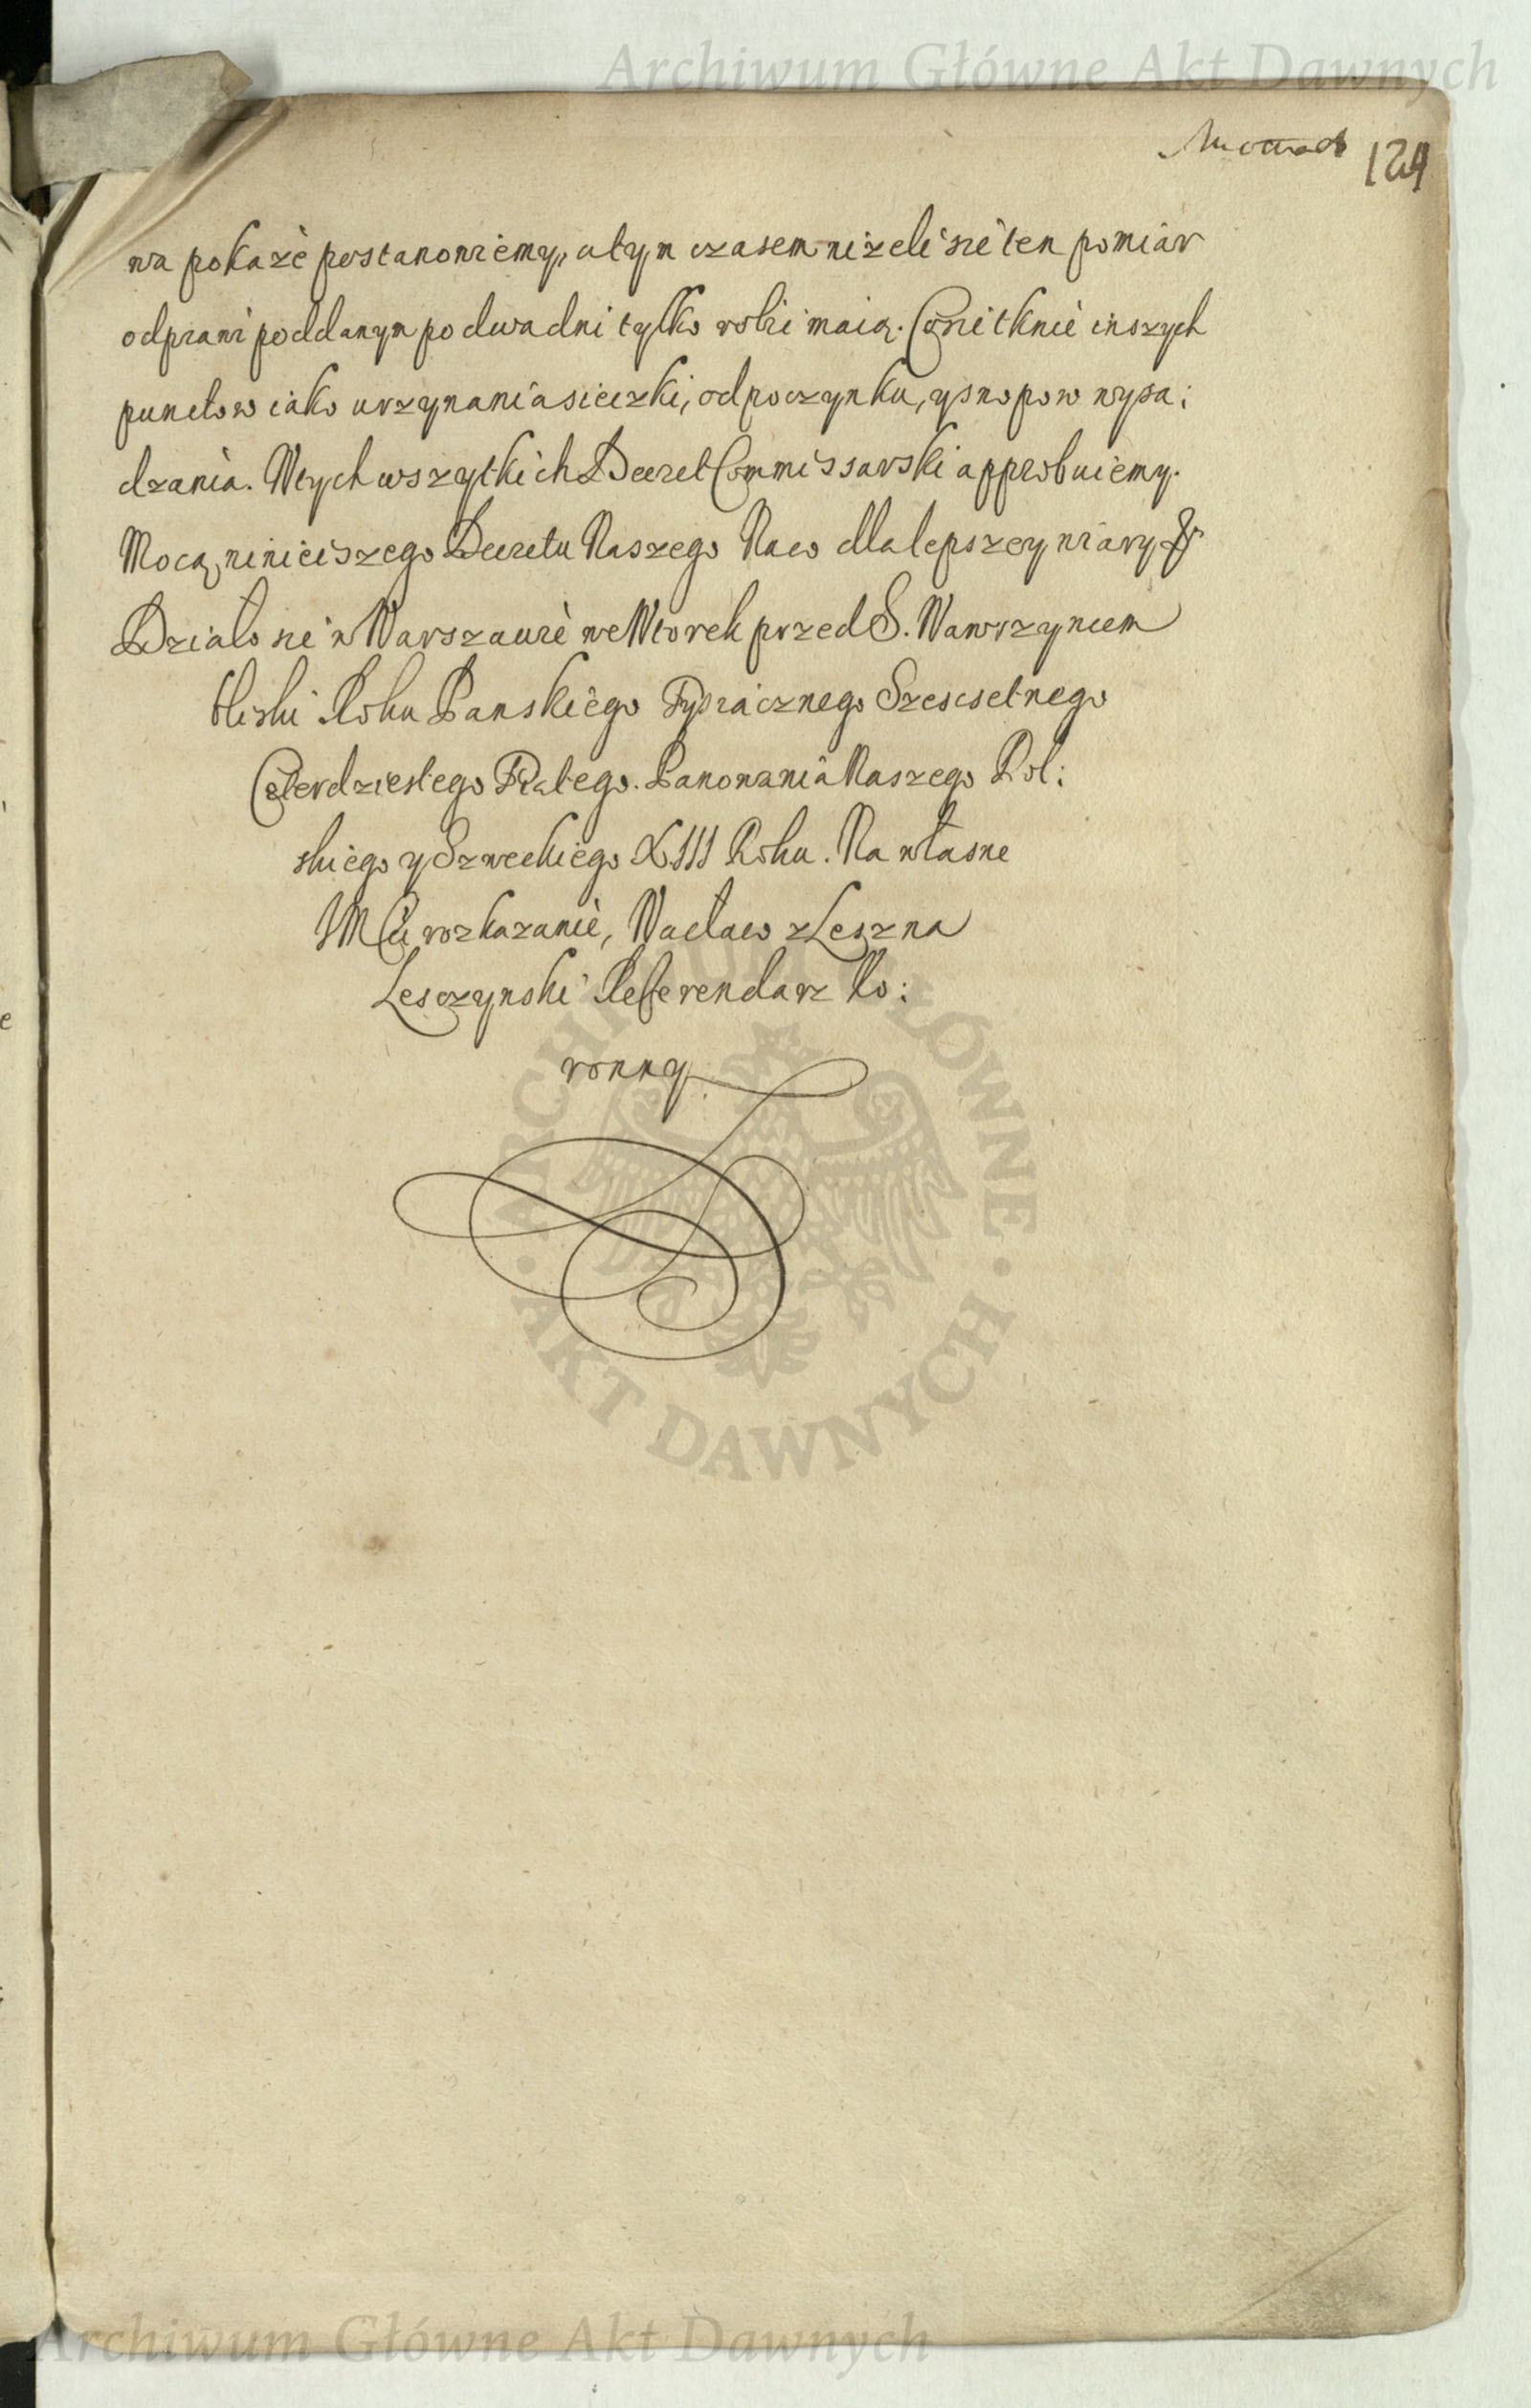 Archiwum Główne Akt Dawnych
124
wa pokaże postanowiemy, a tym czasem niżeli sie ten pomiar
odprawi poddanym po dwa dni tylko robić maią. Co sie tknie inszych
punctow iako urzynania sieczki, odpoczynku, y snopow wysa:
dzania. W tych wszytkich Decret Commissarski approbuiemy.
Mocą ninieiszego Decretu Naszego Na co dla lepszey wiary &
Działo sie w Warszawie we Wtorek przed S. Wawrzyncem
bliski Roku Panskiego Tysiącznego Szescsetnego
Czterdziestego Piątego. Panowania Naszego Pol:
skiego y Szweckiego XIII Roku. Na własne
JKMCi rozkazanie, Wacław z Leszna
Lesczynski Referendarz Ko:
ronny.
ARCHIWUM GŁÓWNE
AKT DAWNYCH
Archiwum Główne Akt Dawnych